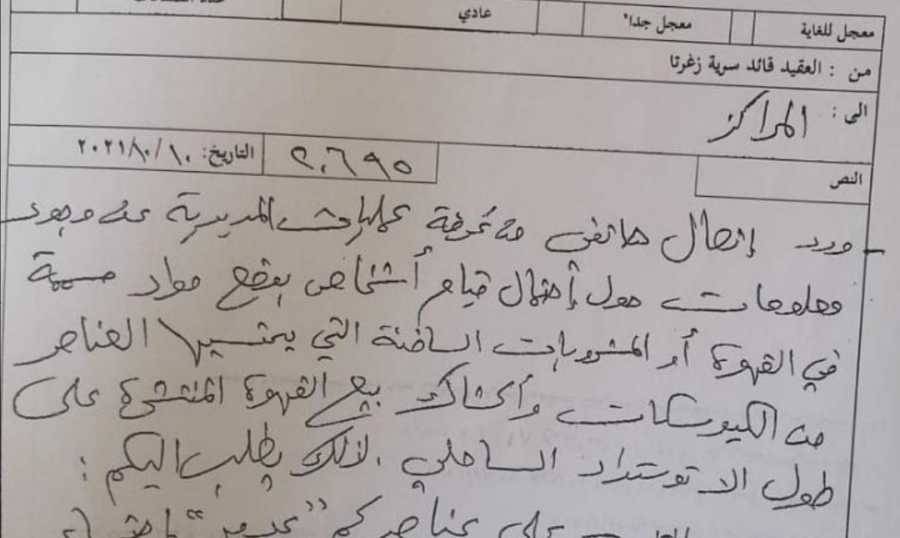 معجل للغاية معجل جداً عادي
من : العقيد قائد سرية زغرتا
الى : المراكز
النص ٢٠٦٩٥ التاريخ: ٢٠٢١/١٠/١٠
- ورد إتصال هاتفي من غرفة عمليات المديرية عن وجود
معلومات حول إحتمال قيام أشخاص بوضع مواد مسممة
في القهوة أو المشروبات الساخنة التي يحتسيها العناصر
من الكيوسكات وأكشاك بيع القهوة المنتشرة على
طول الاتوستراد الساحلي . لذلك يطلب اليكم :
على عناصركم